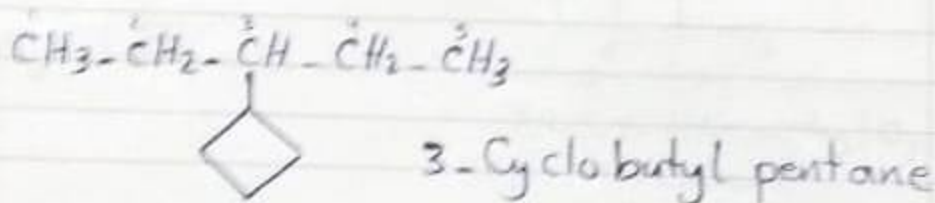 CH3-CH2-CH-CH2-CH3
3-Cyclobutyl pentane